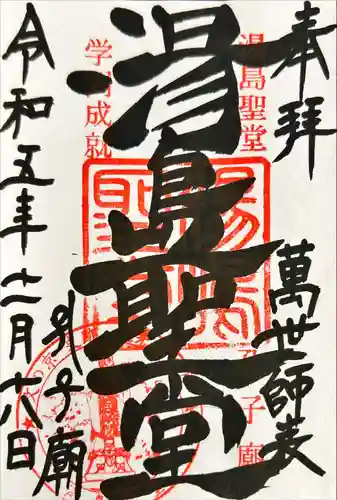 奉拝
萬世師表
湯島聖堂
学問成就
湯島聖堂
孔子廟
令和五年十一月十八日